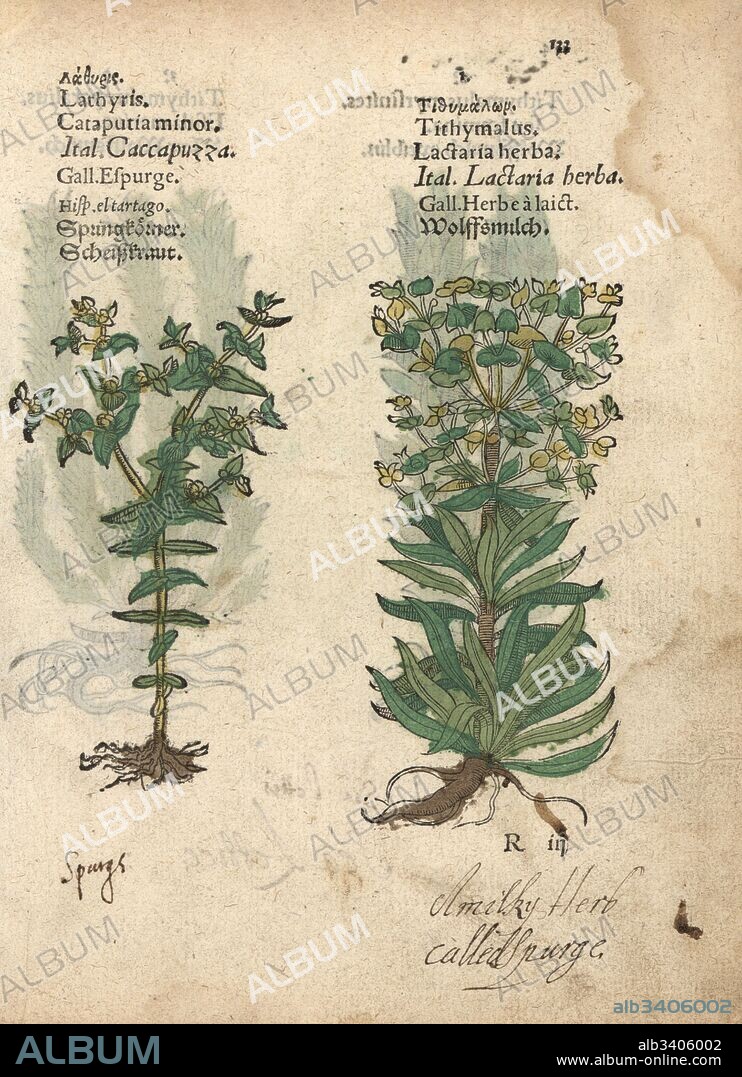 133
Λάθυρις.
Lathyris.
Cataputia minor.
Ital. Caccapuzza.
Gall. Espurge.
Hisp. el tartago.
Springkörner.
Scheißkraut.
Τιθυμάλωρ.
Tithymalus.
Lactaria herba.
Ital. Lactaria herba.
Gall. Herbe à laict.
Wolffsmilch.
R iij
Spurge
A milky Herb
called Spurge.
alb3406002
ALBUM
alb3406002
www.album-online.com